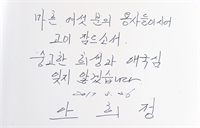 마흔 여섯 분의 용사들이시여
고이 잠드소서.
숭고한 희생과 애국심
잊지 않겠습니다
2017. 2. 26
안 희 정